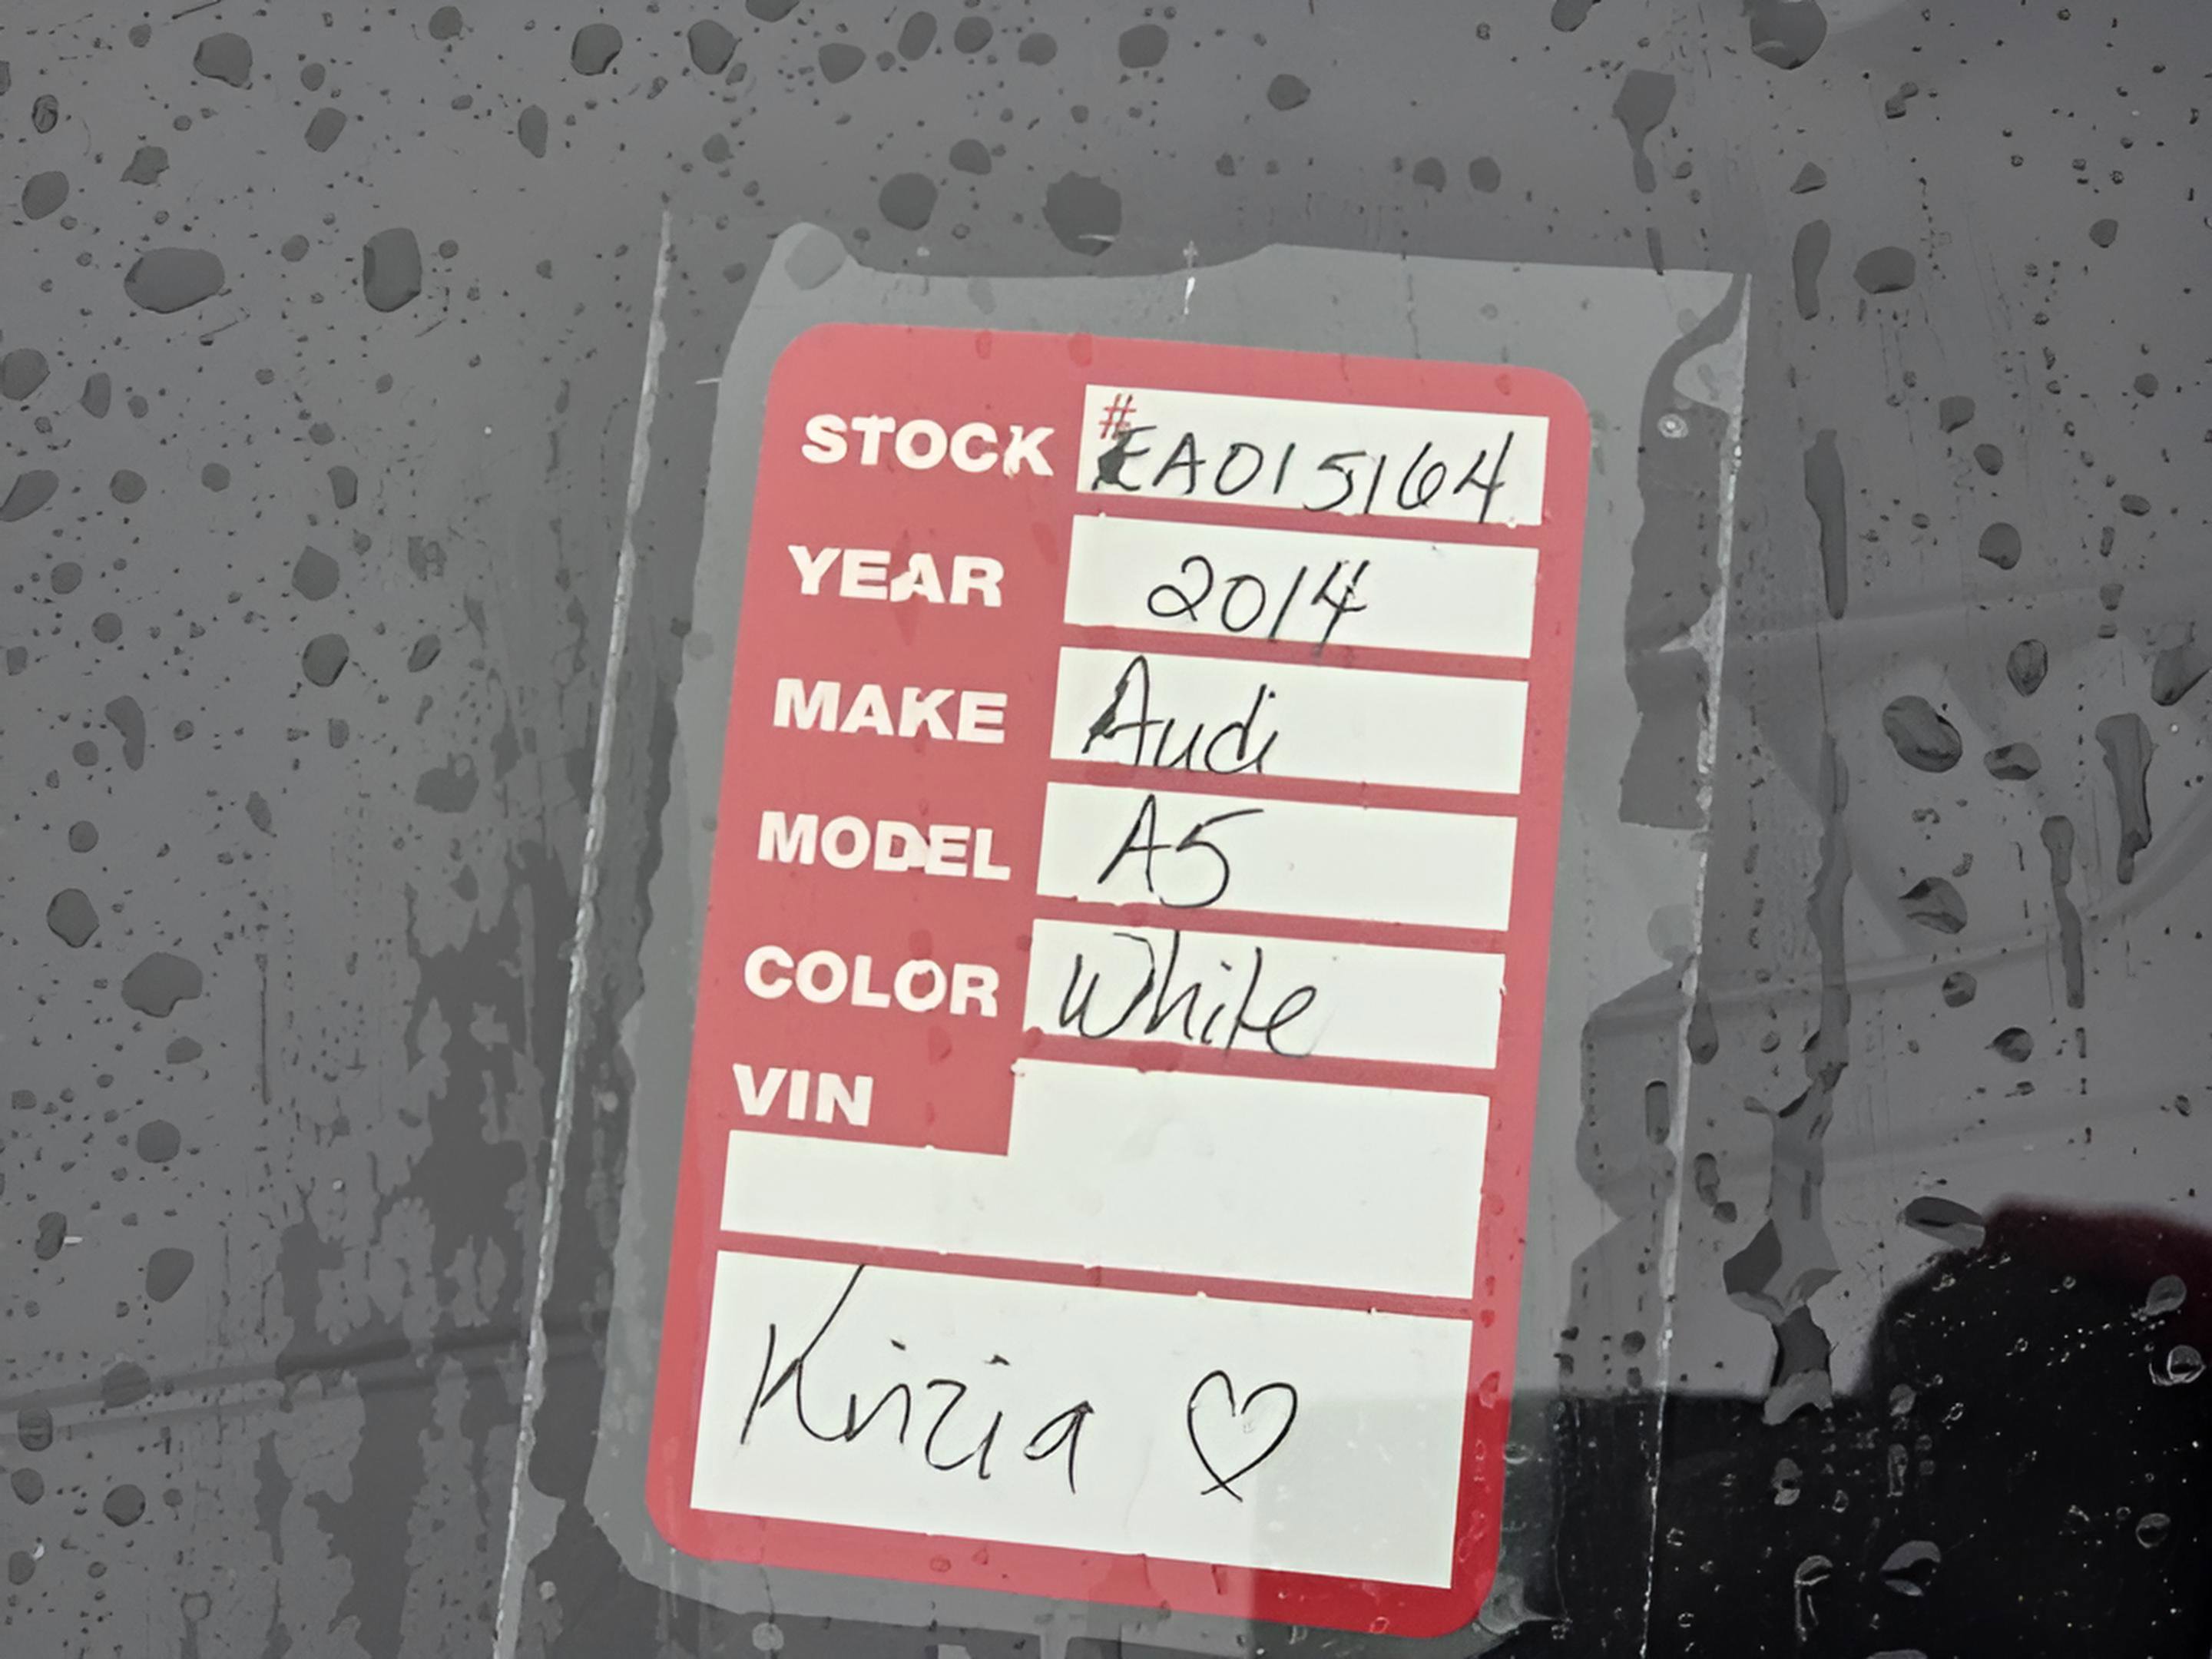 STOCK #EA015164
YEAR 2014
MAKE Audi
MODEL A5
COLOR White
VIN
Krizia ♡